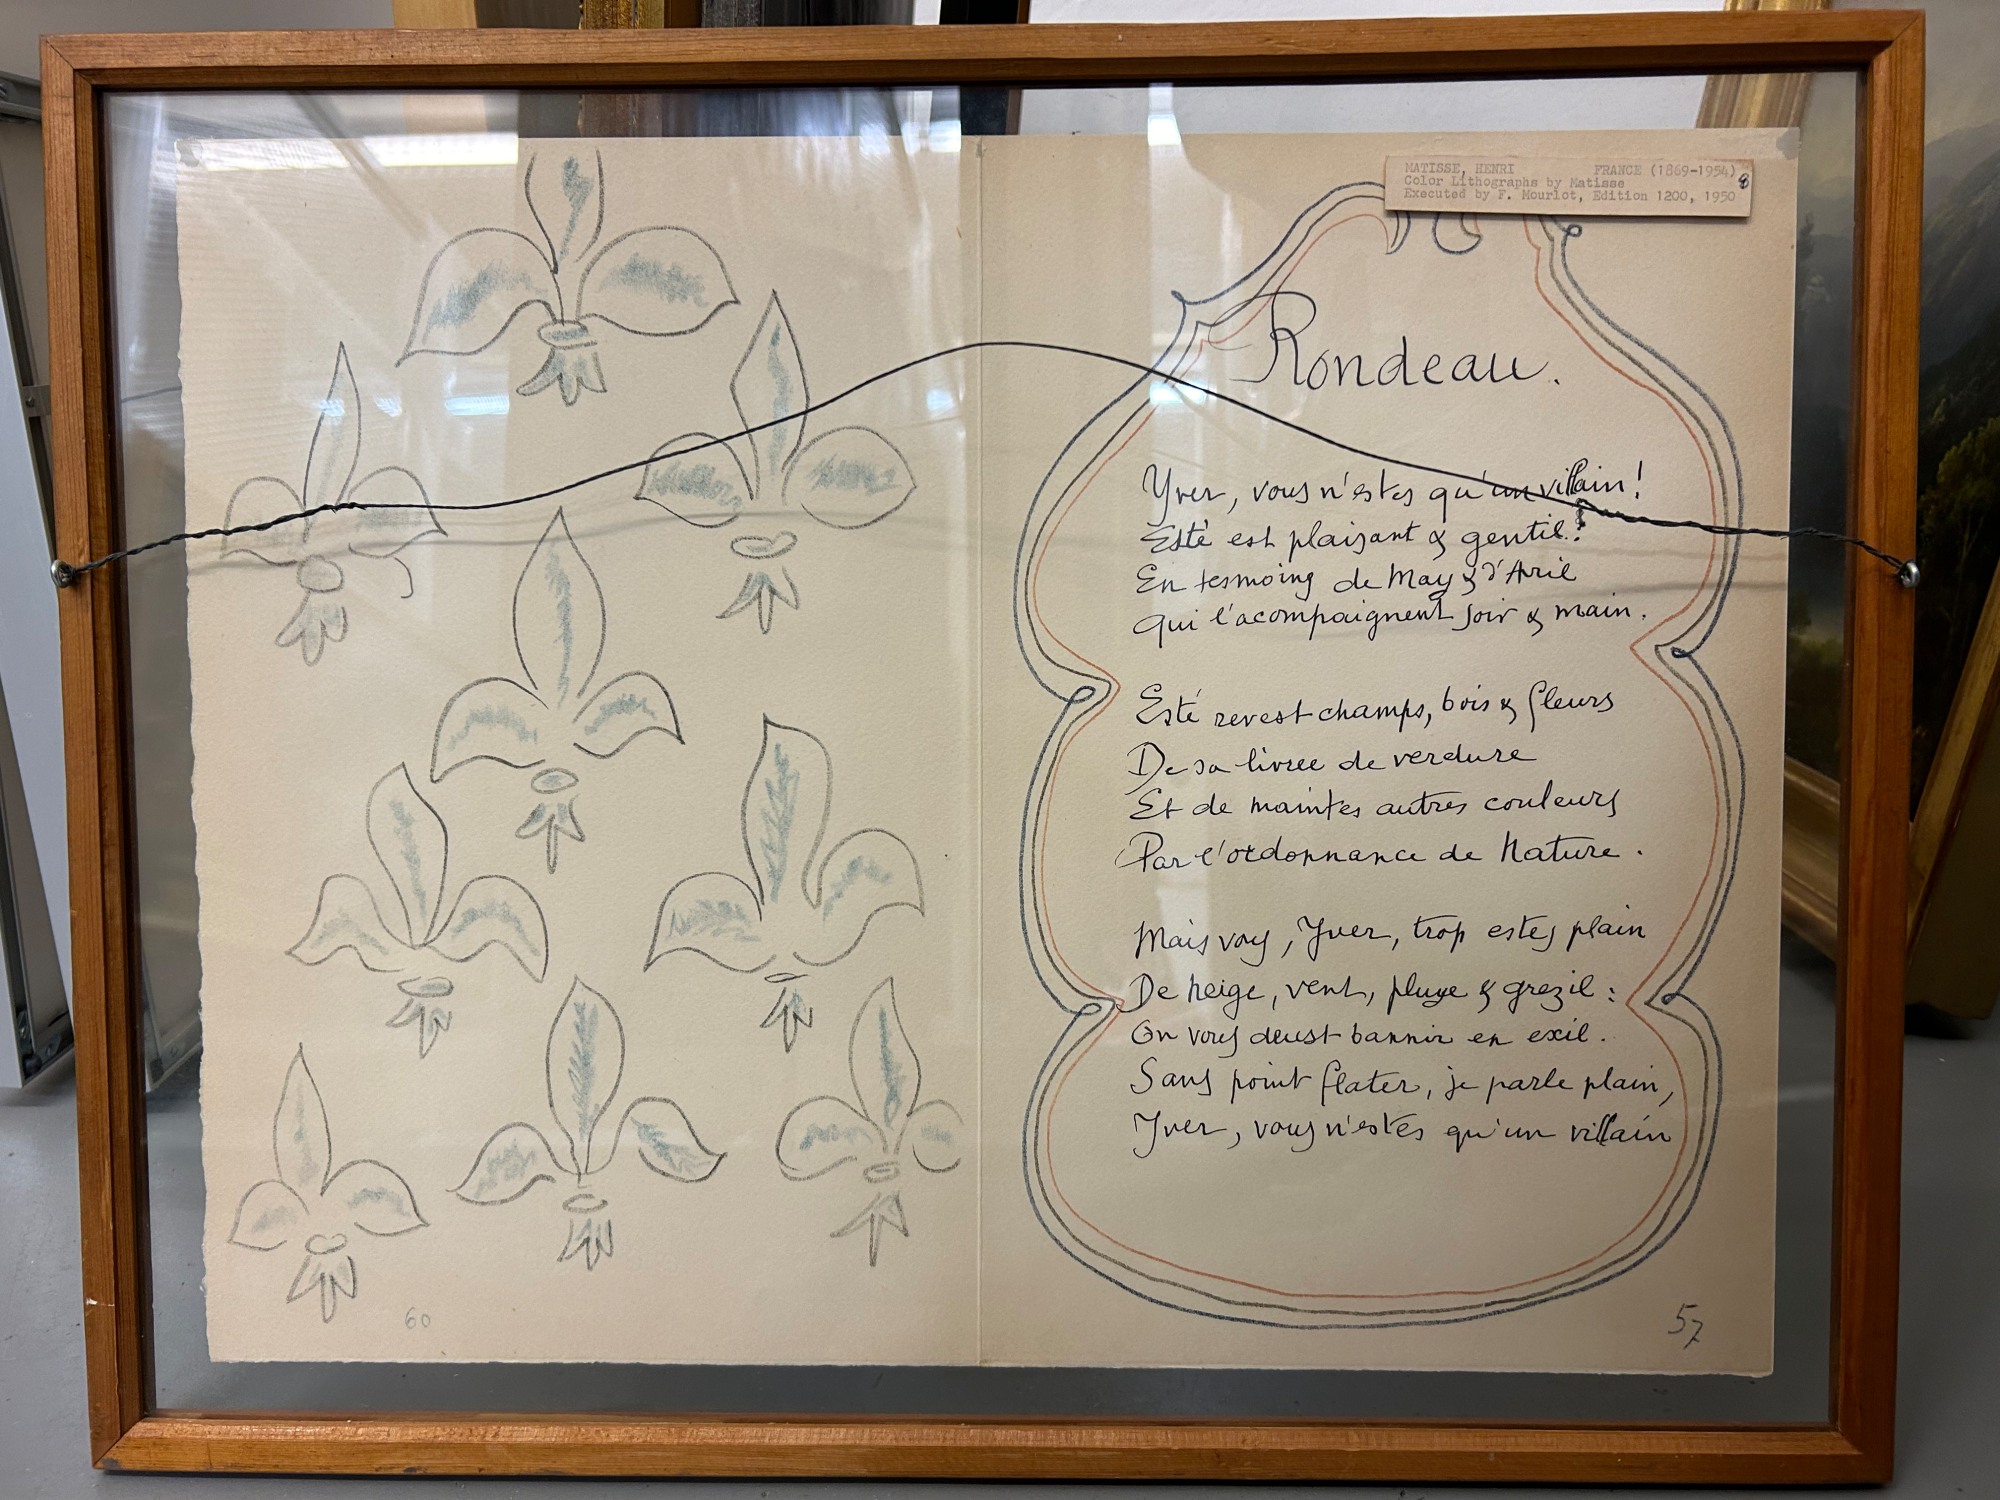 MATISSE, HENRI FRANCE (1869-1954)
Color Lithographs by Matisse
Executed by F. Mourlot, Edition 1200, 1950
8
Rondeau.
Yver, vous n'estes qu'un villain!
Esté est plaisant & gentil:
En tesmoing de May & d'Avril
Qui l'acompaignent soir & main.
Esté revest champs, bois & fleurs
De sa livree de verdure
Et de maintes autres couleurs
Par l'ordonnance de Nature.
Mais vous, Yver, trop estes plain
De neige, vent, pluye & grezil:
On vous deust bannir en exil.
Sans point flater, je parle plain,
Yver, vous n'estes qu'un villain
60
57